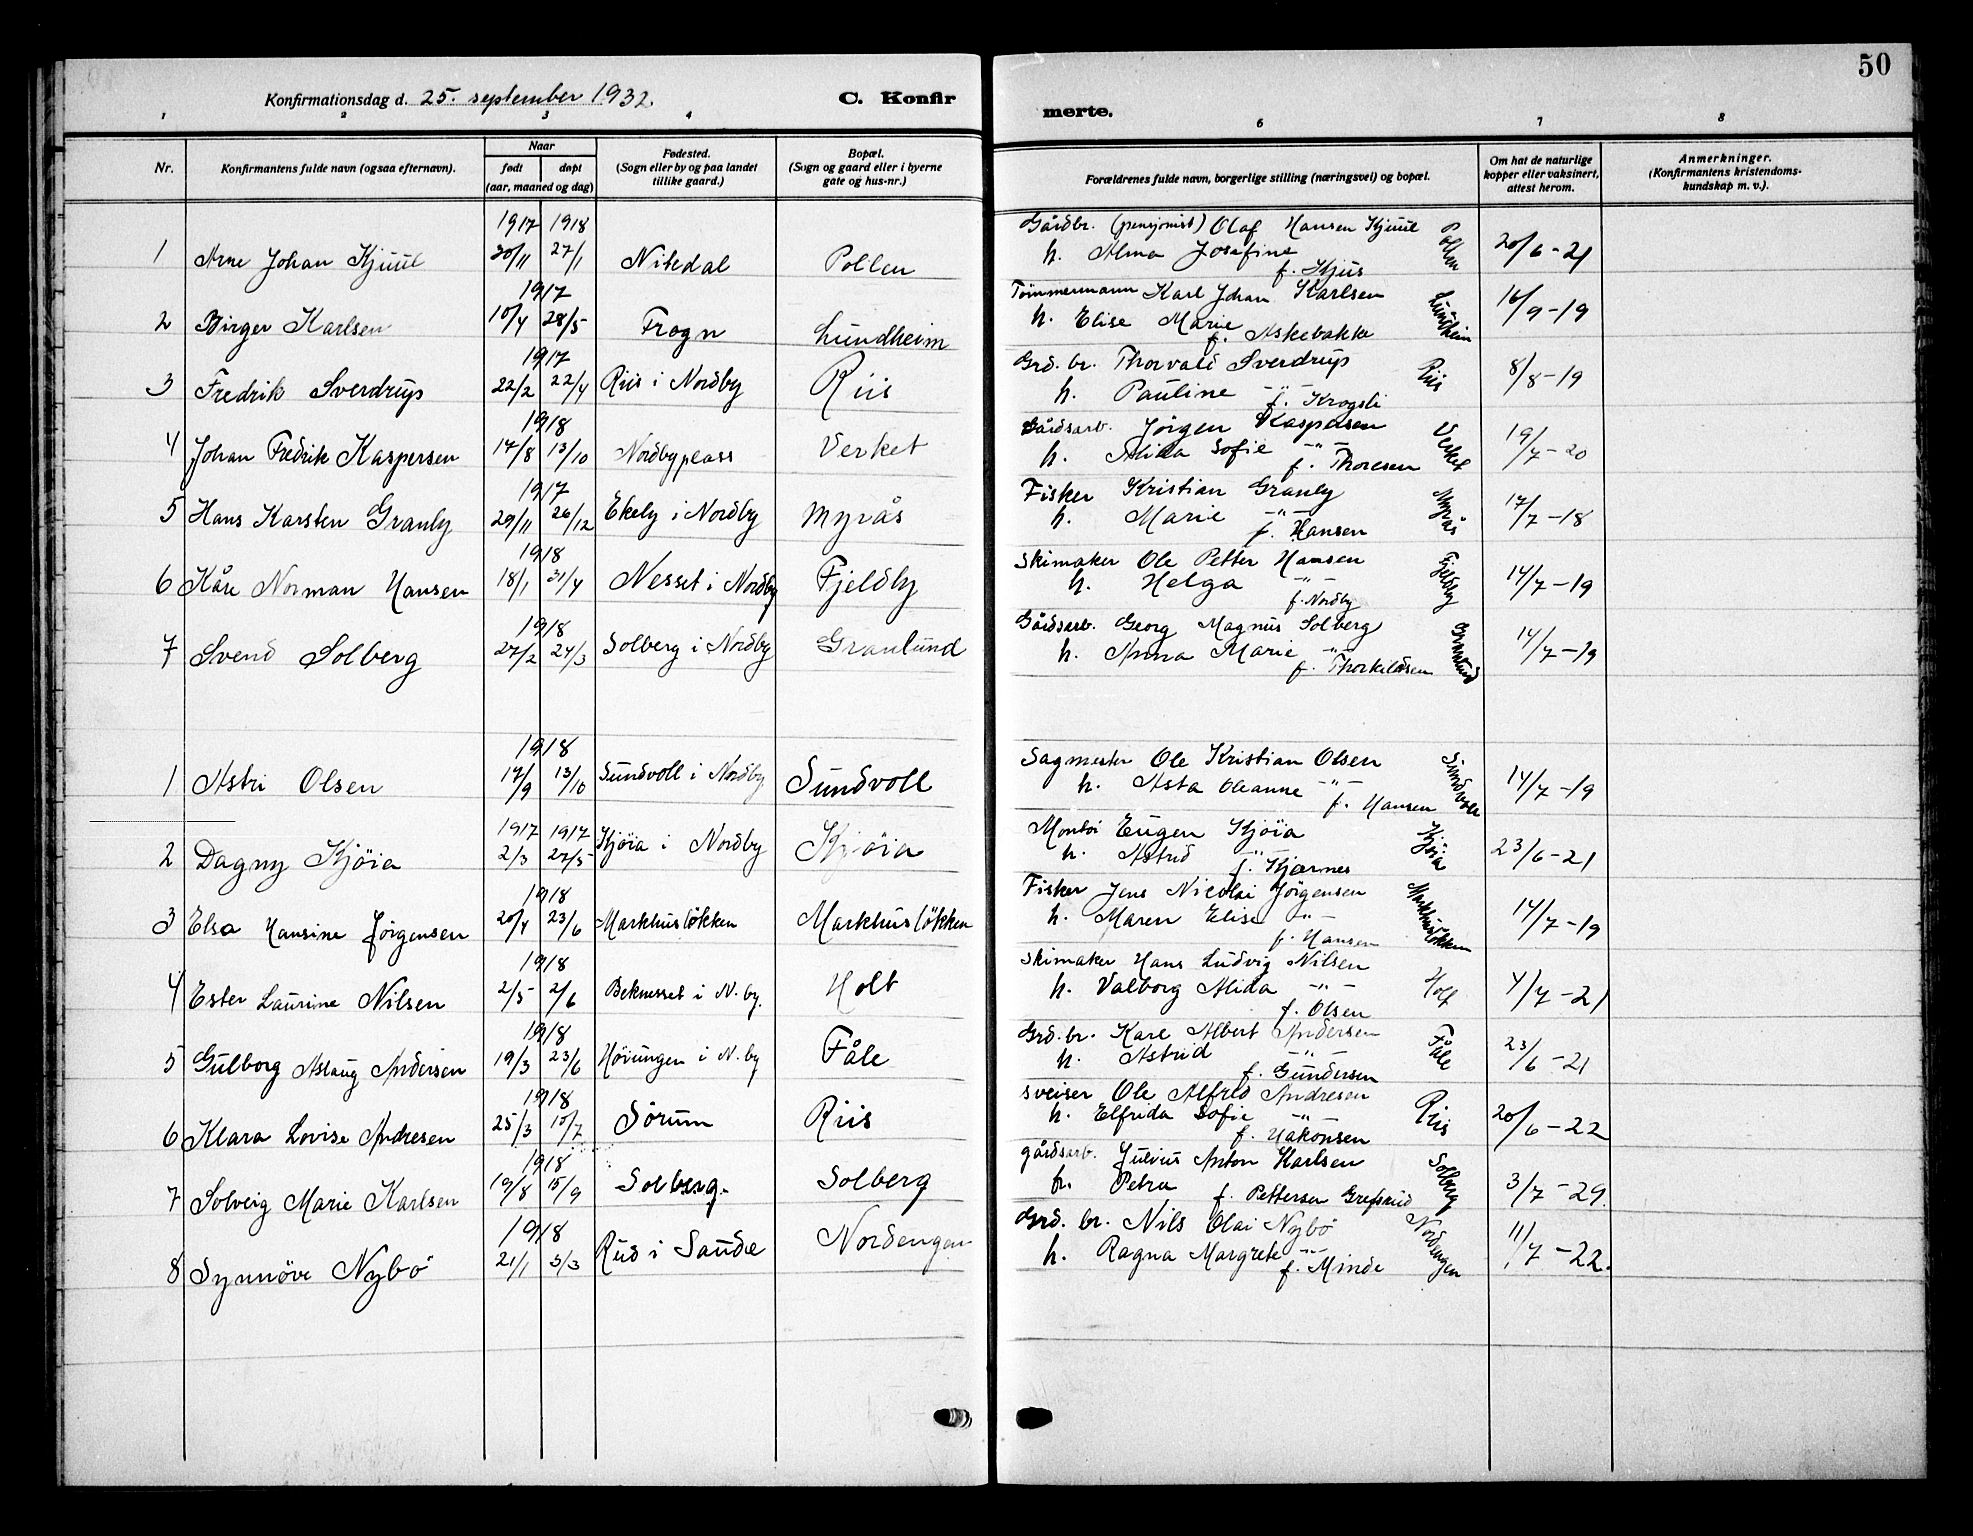 50
Konfirmationsdag d. 25. september 1932.
C. Konfir
merte.
1 2 3 4 6 7 8
Nr.
Konfirmantens fulde navn (ogsaa efternavn).
Naar
født døpt
(aar, maaned og dag)
Fødested.
(Sogn eller by og paa landet
tillike gaard.)
Bopæl.
(Sogn og gaard eller i byerne
gate og hus-nr.)
Forældrenes fulde navn, borgerlige stilling (næringsvei) og bopæl.
Om hat de naturlige
kopper eller vaksinert,
attest herom.
Anmerkninger.
(Konfirmantens kristendoms-
kundskap m. v.).
1917 1918
1 Arne Johan Kjuul 20/11 27/1 Nitedal Pollen
Gårdbr. (pensjonist) Olaf Hansen Kjuul Pollen 20/6-21
h. Alma Josafine
f. Kjus
1917
2 Birger Karlsen 10/4 28/5 Frogn Lundheim
Tømmermann Karl Johan Karlsen Lundheim 16/9-19
h. Elise Marie
f. Askebakke
1917
3 Fredrik Sverdrup 22/2 22/4 Riis i Nordby Riis
Grd. br. Thorvald Sverdrup Riis 8/8-19
h. Pauline -"-
f. Krogsli
1918
4 Johan Fredrik Kaspersen 17/8 13/10 Nordbyplass Verket
Gårdsarb. Jørgen Kaspersen Verket 19/7-20
h. Alida Sofie -"-
f. Thoresen
1917
5 Hans Karsten Granly 29/11 26/12 Ekely i Nordby Myrås
Fisker Kristian Granly Myrås 17/7-18
h. Marie -"-
f. Hansen
1918
6 Kåre Norman Hansen 18/1 31/4 Nesset i Nordby Fjeldby
Skimaker Ole Petter Hansen Fjeldby 14/7-19
h. Helga -"-
f. Nordby
1918
7 Svend Solberg 27/2 24/3 Solberg i Nordby Granlund
Gårdsarb. Georg Magnus Solberg Granlund 14/7-19
h. Anna Marie -"-
f. Thorkildsen
1918
1 Astri Olsen 17/9 13/10 Sundvoll i Nordby Sundvoll
Sagmester Ole Kristian Olsen Sundvoll 14/7-19
h. Asta Oleanne -"-
f. Hansen
1917 1917
2 Dagny Kjøia 2/3 27/5 Kjøia i Nordby Kjøia
Eugen Kjøia Kjøia 23/6-21
h. Astrid -"-
f. Kjærnes
1918
3 Elsa Hansine Jørgensen 20/4 23/6 Markhusløkken Markhusløkken
Fisker Jens Nicolai Jørgensen Markhusløkken 14/7-19
h. Maren Elise -"-
f. Hansen
1918
4 Ester Laurine Nilsen 2/5 2/6 Beknesset i N. by. Holt
Skimaker Hans Ludvig Nilsen Holt 4/7-21
h. Valborg Alida -"-
f. Olsen
1918
5 Gulborg Aslaug Andersen 19/3 23/6 Høiungen i N. by Fåle
Grd. br. Karl Albert Andersen Fåle 23/6-21
h. Astrid -"-
f. Gundersen
1918
6 Klara Lovise Andresen 25/3 15/7 Sørum Riis
Sveiser Ole Alfred Andresen Riis 20/6-22
h. Elfrida Sofie -"-
f. Hakonsen
1918
7 Solveig Marie Karlsen 19/8 15/9 Solberg. Solberg
gårdsarb. Julius Anton Karlsen Solberg 3/7-29.
h. Petra f. Pettersen Grefsrud
1918
8 Synnöve Nybö 21/1 3/3 Rud i Sande Nordengen
Grd. br. Nils Olai Nybö Nordengen 11/7-22.
h. Ragna Margrete -"-
f. Minde